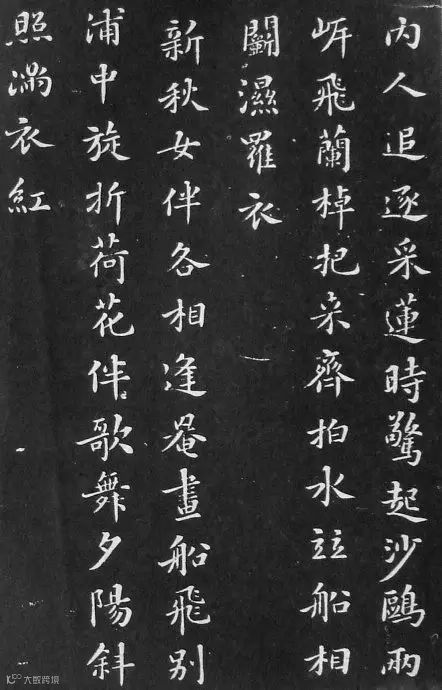 内人追逐采蓮時驚起沙鷗兩
岸飛蘭棹把来齊拍水竝船相
鬭濕羅衣
新秋女伴各相逢罨畫船飛别
浦中旋折荷花伴歌舞夕陽斜
照滿衣紅
大数跨境